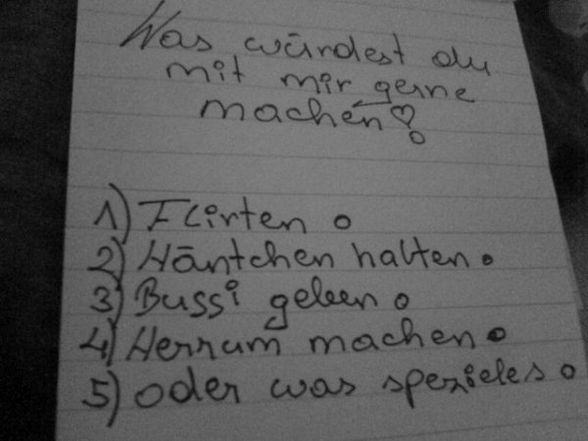 Was würdest du
mit mir gerne
machen?
1) Flirten o
2) Häntchen halten.
3) Bussi geben o
4) Herrum machen.
5) oder was spezieles o